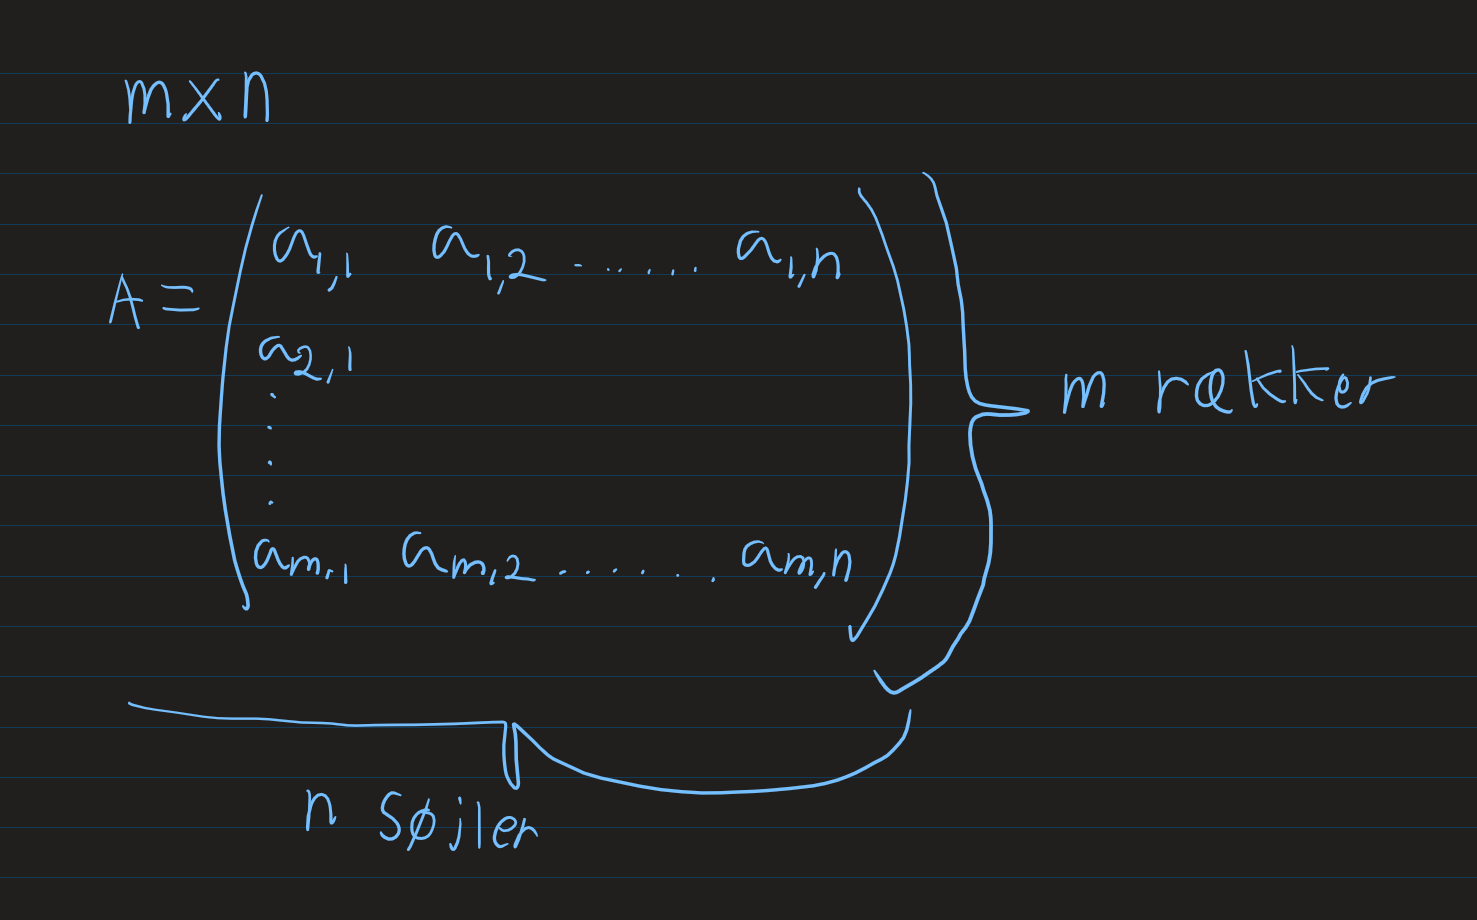 m x n
a1,1 a1,2 ...... a1,n
A =
a2,1
am,1 am,2 ...... am,n
m rækker
n søjler